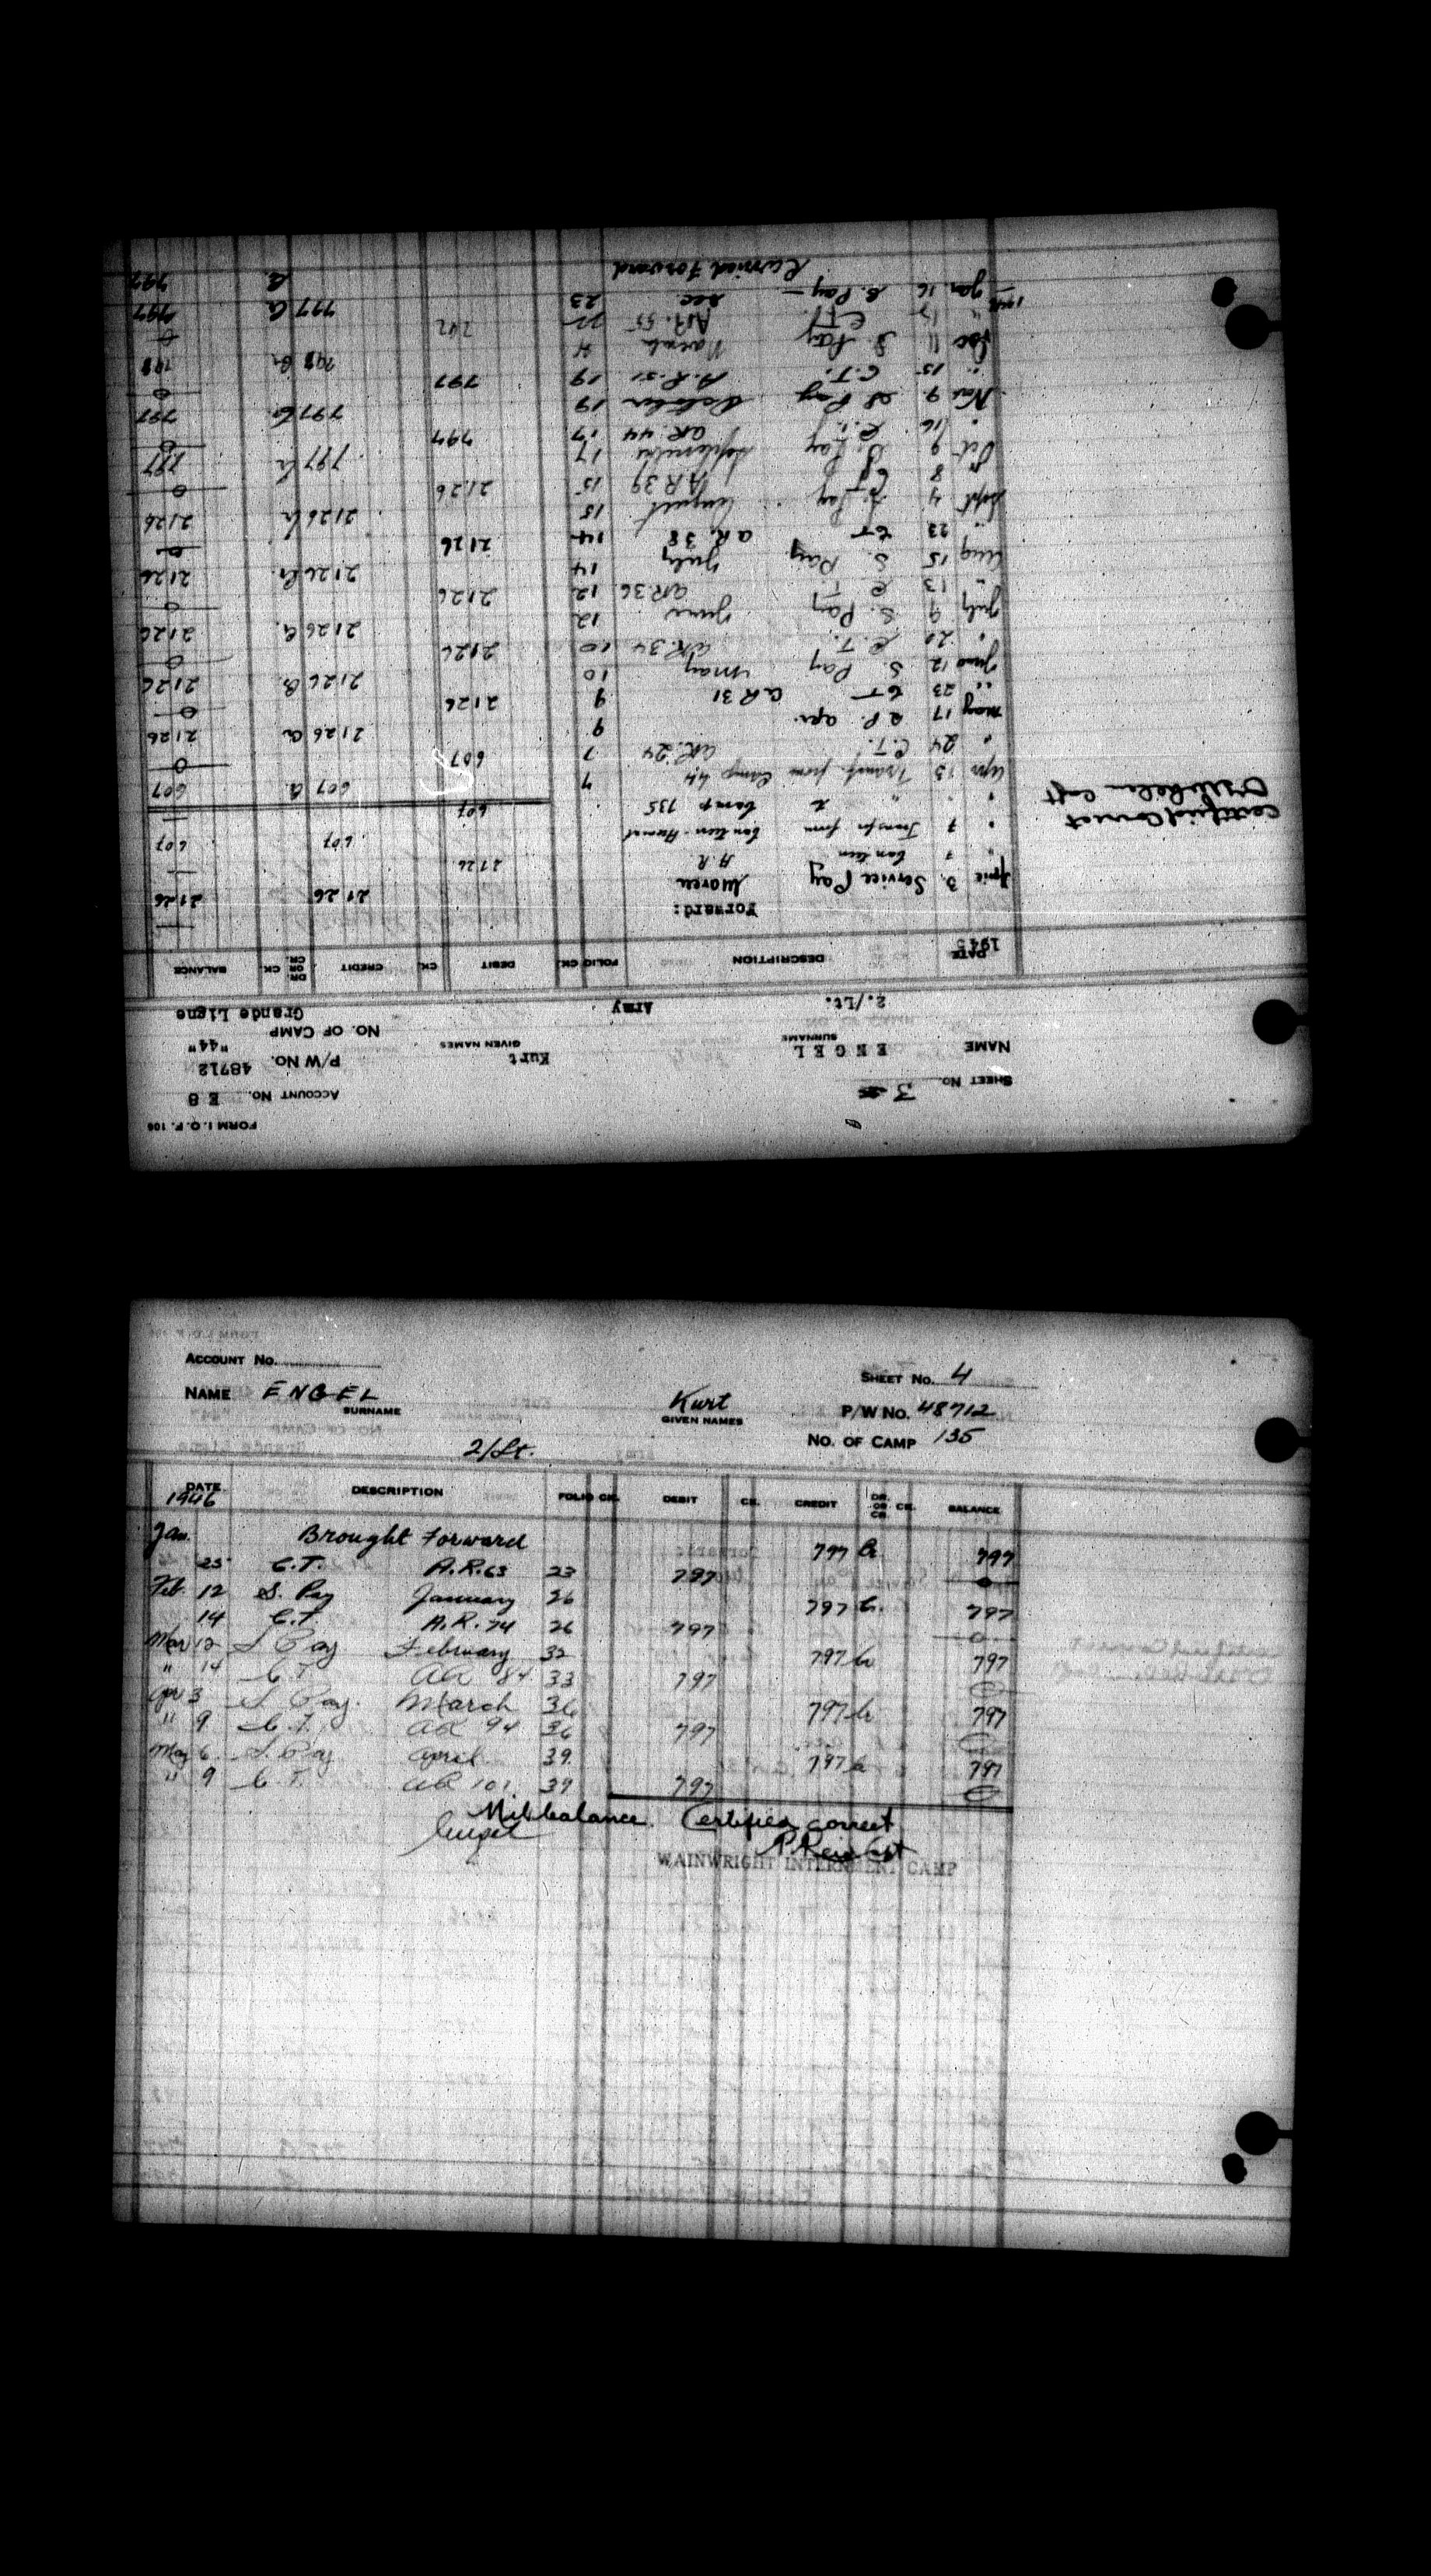 FORM I.O.F. 106
SHEET No. 3 ACCOUNT No. E 8
NAME ENGEL Kurt P/W No. 48712
SURNAME GIVEN NAMES "44"
NO. OF CAMP
2./Lt. Army Grande Ligne
DATE DESCRIPTION FOLIO CK. DEBIT CK. CREDIT DR. OR CR. CK. BALANCE
1945
Forward:
3 Service Pay 2126 2126
" 7 Canteen A.R. 2126
" 7 Transfer from Canteen 607 607
" " " Camp 135 607
Certified Correct
Apr 13 Transf. from Camp 44 7 607 Cr 607
" 24 C.T. A.R. 24 7 607 0
May 17 S. P. Apr. 9 2126 Cr 2126
" 23 CT A.R 31 9 2126 0
June 12 S. Pay May 10 2126 Cr 2126
" 20 C.T. A.R. 34 10 2126 0
July 9 S. Pay June 12 2126 Cr. 2126
" 13 C.T. A.R. 36 12 2126 0
Aug 15 S. Pay July 14 2126 Cr. 2126
" 23 CT A.R. 38 14 2126 0
Sept 4 S. Pay August 15 2126 Cr 2126
" 8 CT A.R 39 15 2126 0
Oct 9 S. Pay September 17 797 Cr 797
" 16 C.T. A.R. 44 17 797 0
Nov 9 S Pay October 19 797 Cr. 797
" 15 C.T. A.R. 51 19 797 0
Dec 11 S. Pay
" 17 CT A.R. 55 22 0
1946
Jan 16 S. Pay — Dec. 23 797 Cr 797
Carried Forward Cr. 797
ACCOUNT No. SHEET No. 4
NAME ENGEL Kurt P/W No. 48712
SURNAME GIVEN NAMES
2/Lt. NO. OF CAMP 135
DATE DESCRIPTION FOLIO CK. DEBIT CK. CREDIT DR. OR CR. CK. BALANCE
1946
Jan. Brought Forward 797 Cr. 797
25 C.T. A.R. 63 23 797 0
Feb. 12 S. Pay January 26 797 Cr. 797
14 C.T. A.R. 74 26 797 0
Mar 12 S Pay February 32 797 Cr 797
" 14 C.T. AR 84 33 797 0
Apr 3 S Pay. March 36 797 Cr 797
" 9 C.T. AR 94 36 797 0
May 6 S. Pay April 39 797 Cr 797
" 9 C.T. AR 101 39 797 0
Nil balance. Certified correct
Engel
WAINWRIGHT INTERNMENT CAMP